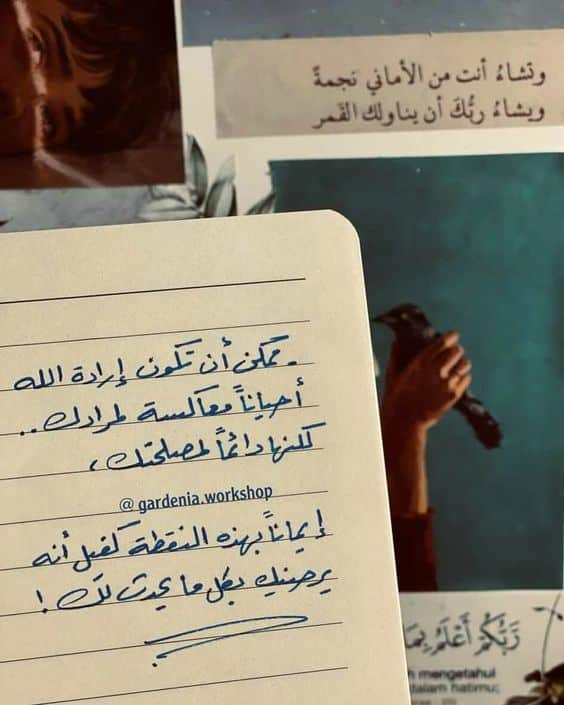 وتشاءُ أنت من الأماني نجمةً
ويشاءُ ربُّكَ أن يناولك القمر
ـ ممكن أن تكون إرادة الله
أحياناً معاكسة لمرادك ..
لكنها دائماً لمصلحتك ،
@ gardenia.workshop
إيماناً بهذه النقطة كفيل أنه
يرضيك بكل ما يحدث لك !
رَبُّكُمْ أَعْلَمُ بِمَا
mengetahui
dalam hatimu;